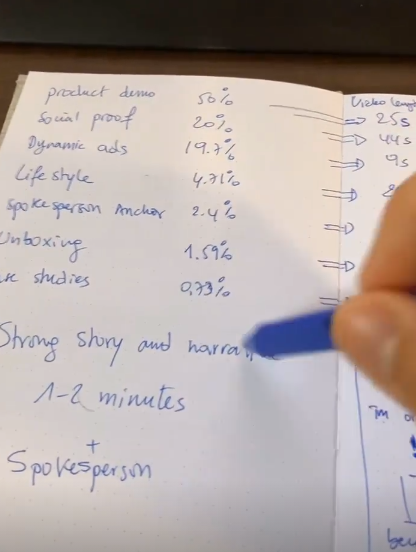 product demo 50%
Social proof 20%
Dynamic ads 19.7%
Life style 4.71%
Spokesperson Anchor 2.4%
Unboxing 1.59%
studies 0.73%
Strong story and
1-2 minutes
+
Spokesperson
Video
25s
44s
9s